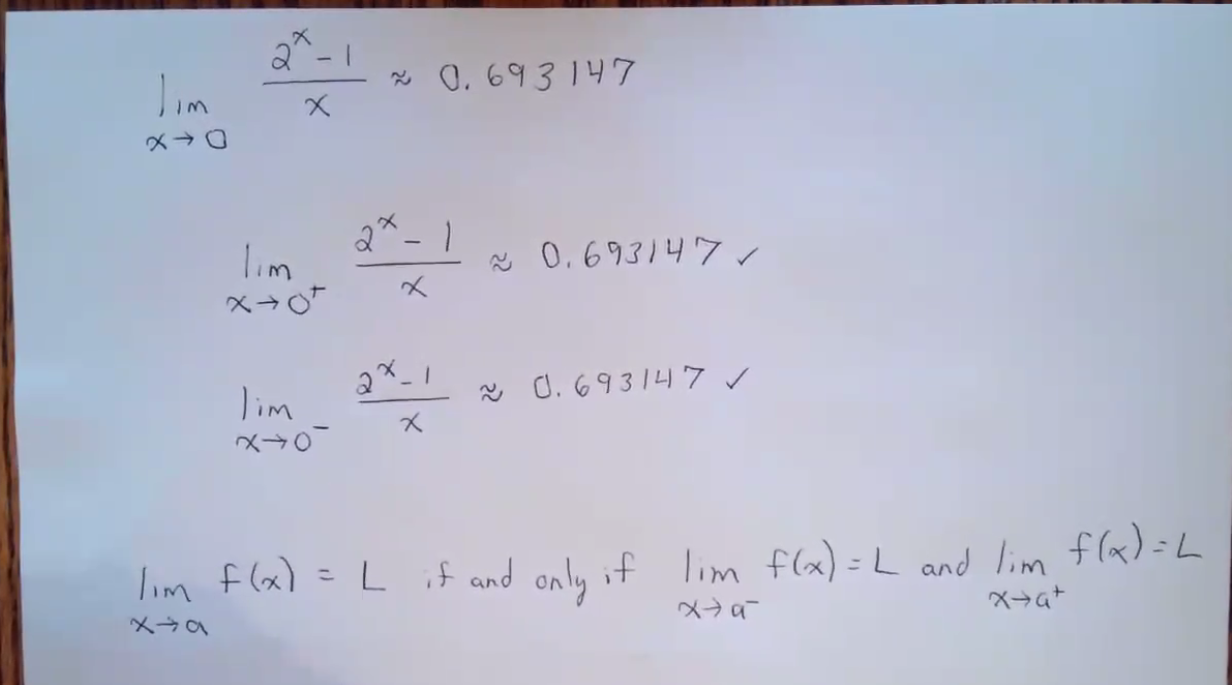 lim x→0 (2^x - 1)/x ≈ 0.693147
lim x→0⁺ (2^x - 1)/x ≈ 0.693147 ✓
lim x→0⁻ (2^x - 1)/x ≈ 0.693147 ✓
lim x→a f(x) = L if and only if lim x→a⁻ f(x) = L and lim x→a⁺ f(x) = L